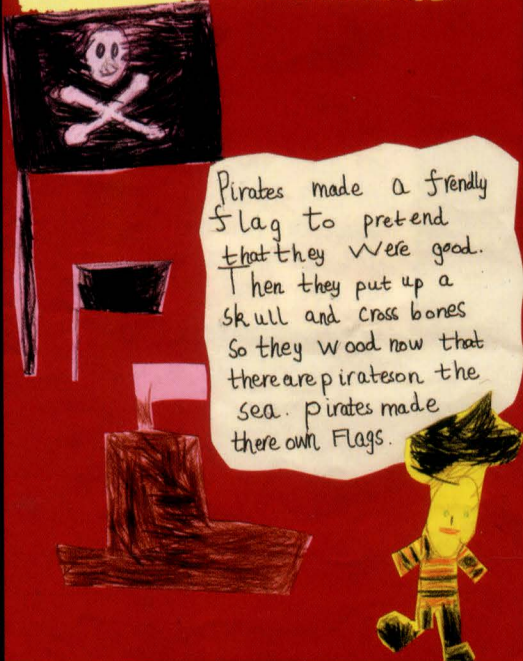 Pirates made a frendly
flag to pretend
that they were good.
Then they put up a
skull and cross bones
so they wood now that
there are pirates on the
sea. pirates made
there own Flags.